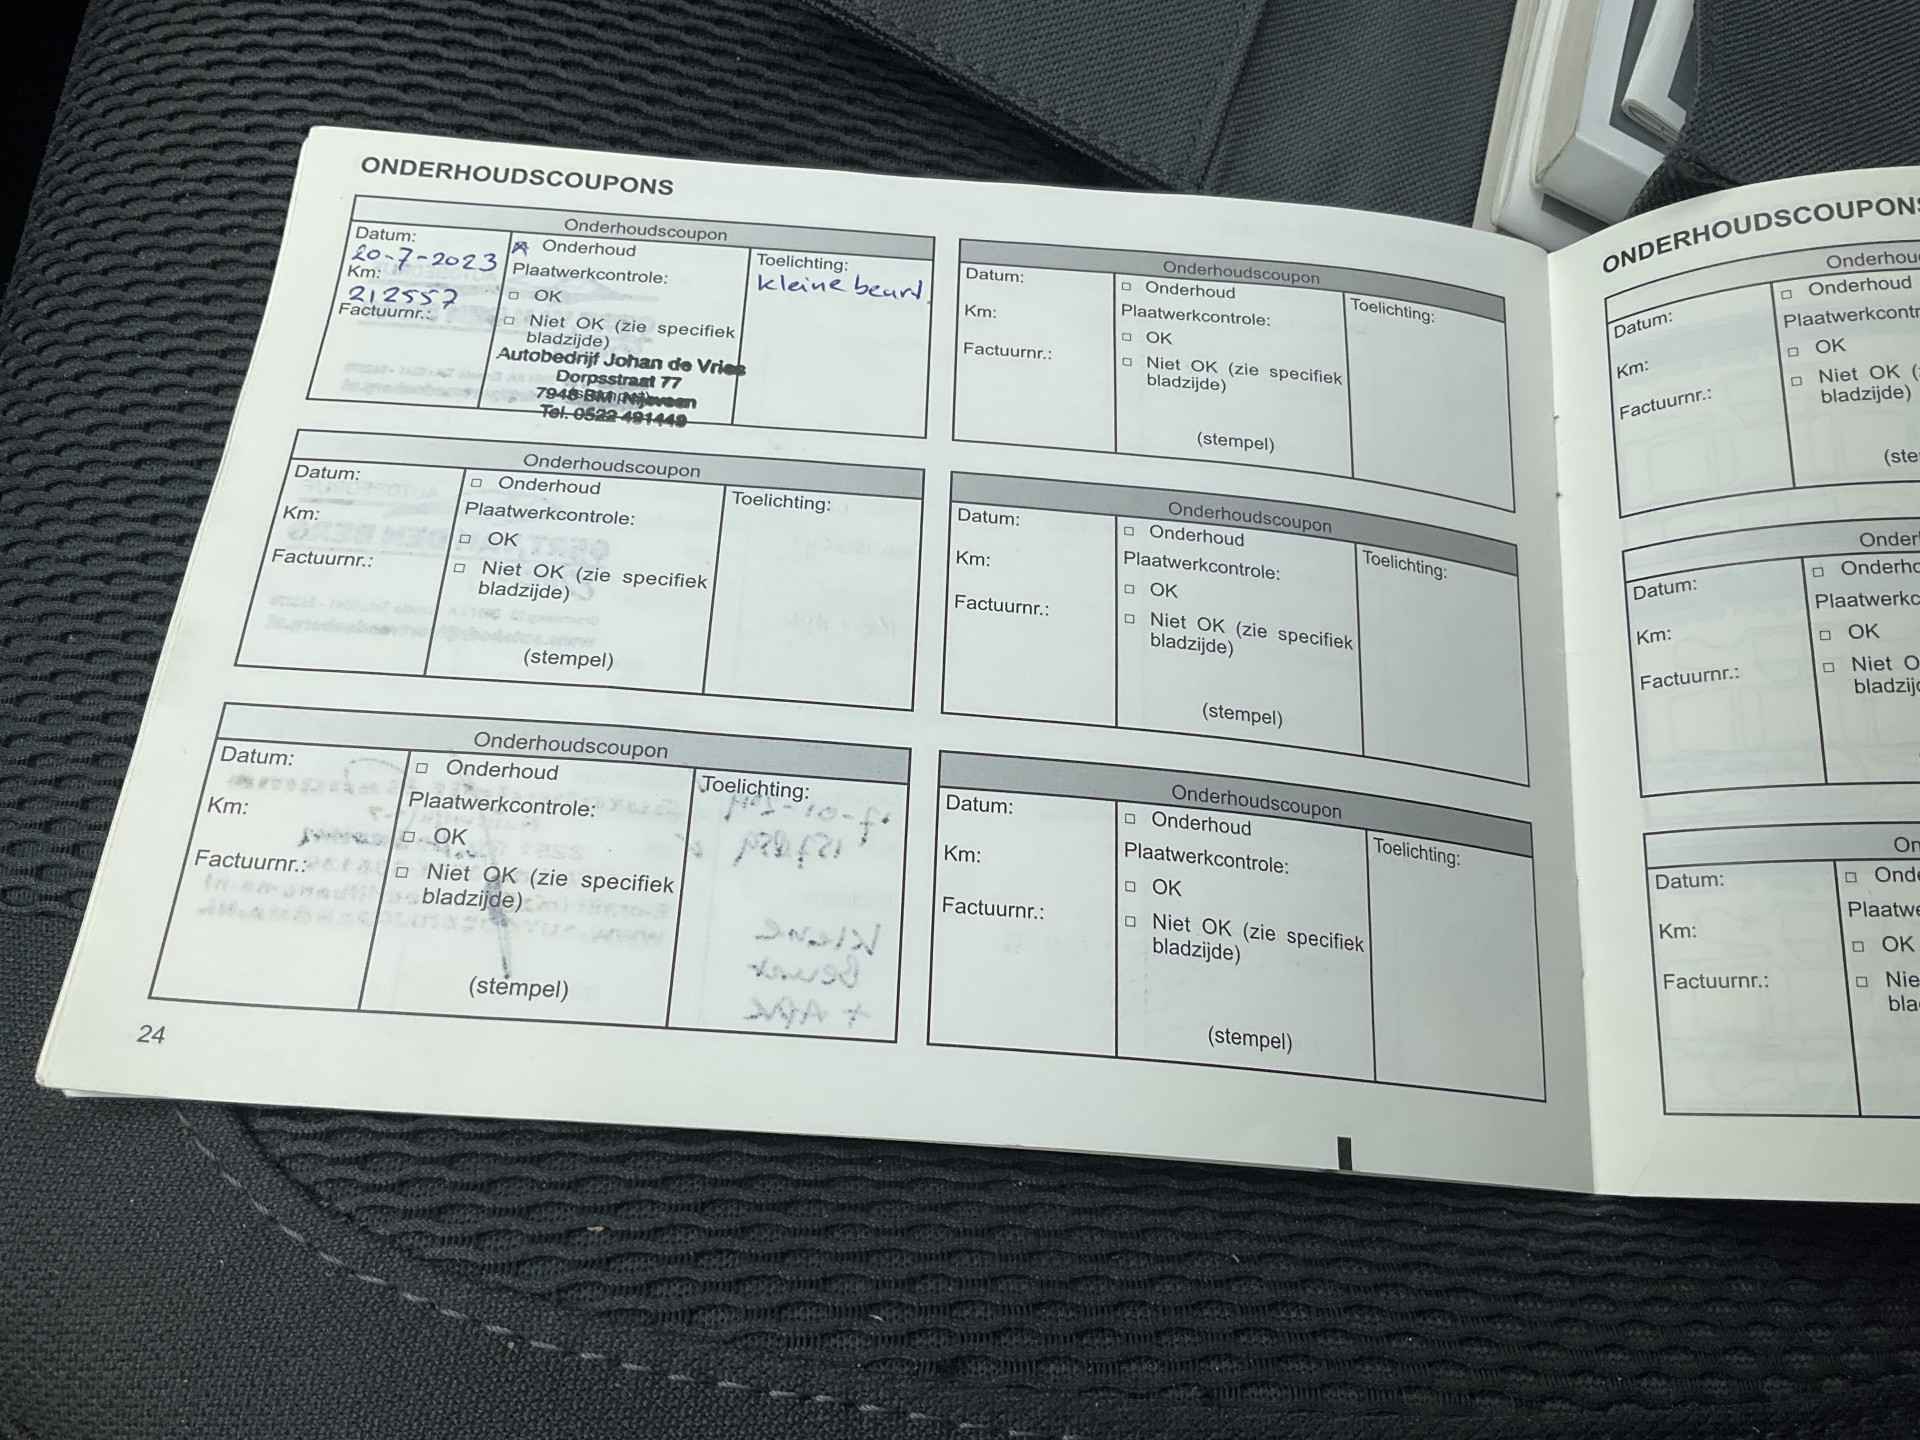 ONDERHOUDSCOUPONS
Onderhoudscoupon
Datum:
20-7-2023
Km:
212557
Factuurnr.:
Onderhoud
Plaatwerkcontrole:
OK
Niet OK (zie specifiek
bladzijde)
Autobedrijf Johan de Vries
Dorpsstraat 77
7948 BM Nijeveen
Tel. 0522 491449
Toelichting:
kleine beurt.
Onderhoudscoupon
Datum:
Km:
Factuurnr.:
Onderhoud
Plaatwerkcontrole:
OK
Niet OK (zie specifiek
bladzijde)
(stempel)
Toelichting:
Onderhoudscoupon
Datum:
Km:
Factuurnr.:
Onderhoud
Plaatwerkcontrole:
OK
Niet OK (zie specifiek
bladzijde)
(stempel)
Toelichting:
Onderhoudscoupon
Datum:
Km:
Factuurnr.:
Onderhoud
Plaatwerkcontrole:
OK
Niet OK (zie specifiek
bladzijde)
(stempel)
Toelichting:
Onderhoudscoupon
Datum:
Km:
Factuurnr.:
Onderhoud
Plaatwerkcontrole:
OK
Niet OK (zie specifiek
bladzijde)
(stempel)
Toelichting:
Onderhoudscoupon
Datum:
Km:
Factuurnr.:
Onderhoud
Plaatwerkcontrole:
OK
Niet OK (zie specifiek
bladzijde)
(stempel)
Toelichting:
24
ONDERHOUDSCOUPONS
Onderhou
Datum:
Km:
Factuurnr.:
Onderhoud
Plaatwerkcontr
OK
Niet OK (
bladzijde)
(ste
Onderh
Datum:
Km:
Factuurnr.:
Onderho
Plaatwerkc
OK
Niet O
bladzijd
On
Datum:
Km:
Factuurnr.:
Onde
Plaatwe
OK
Nie
bla